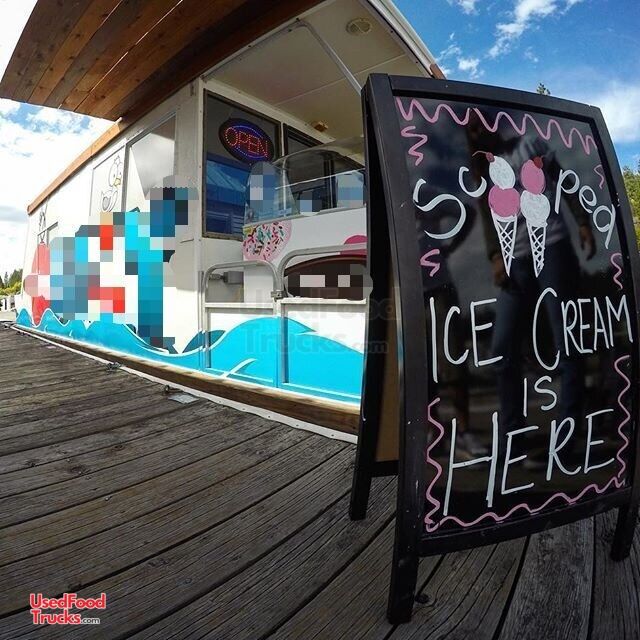 OPEN
Scooped
ICE CREAM
IS
HERE
Used Food
Trucks.com
UsedFood
Trucks.com